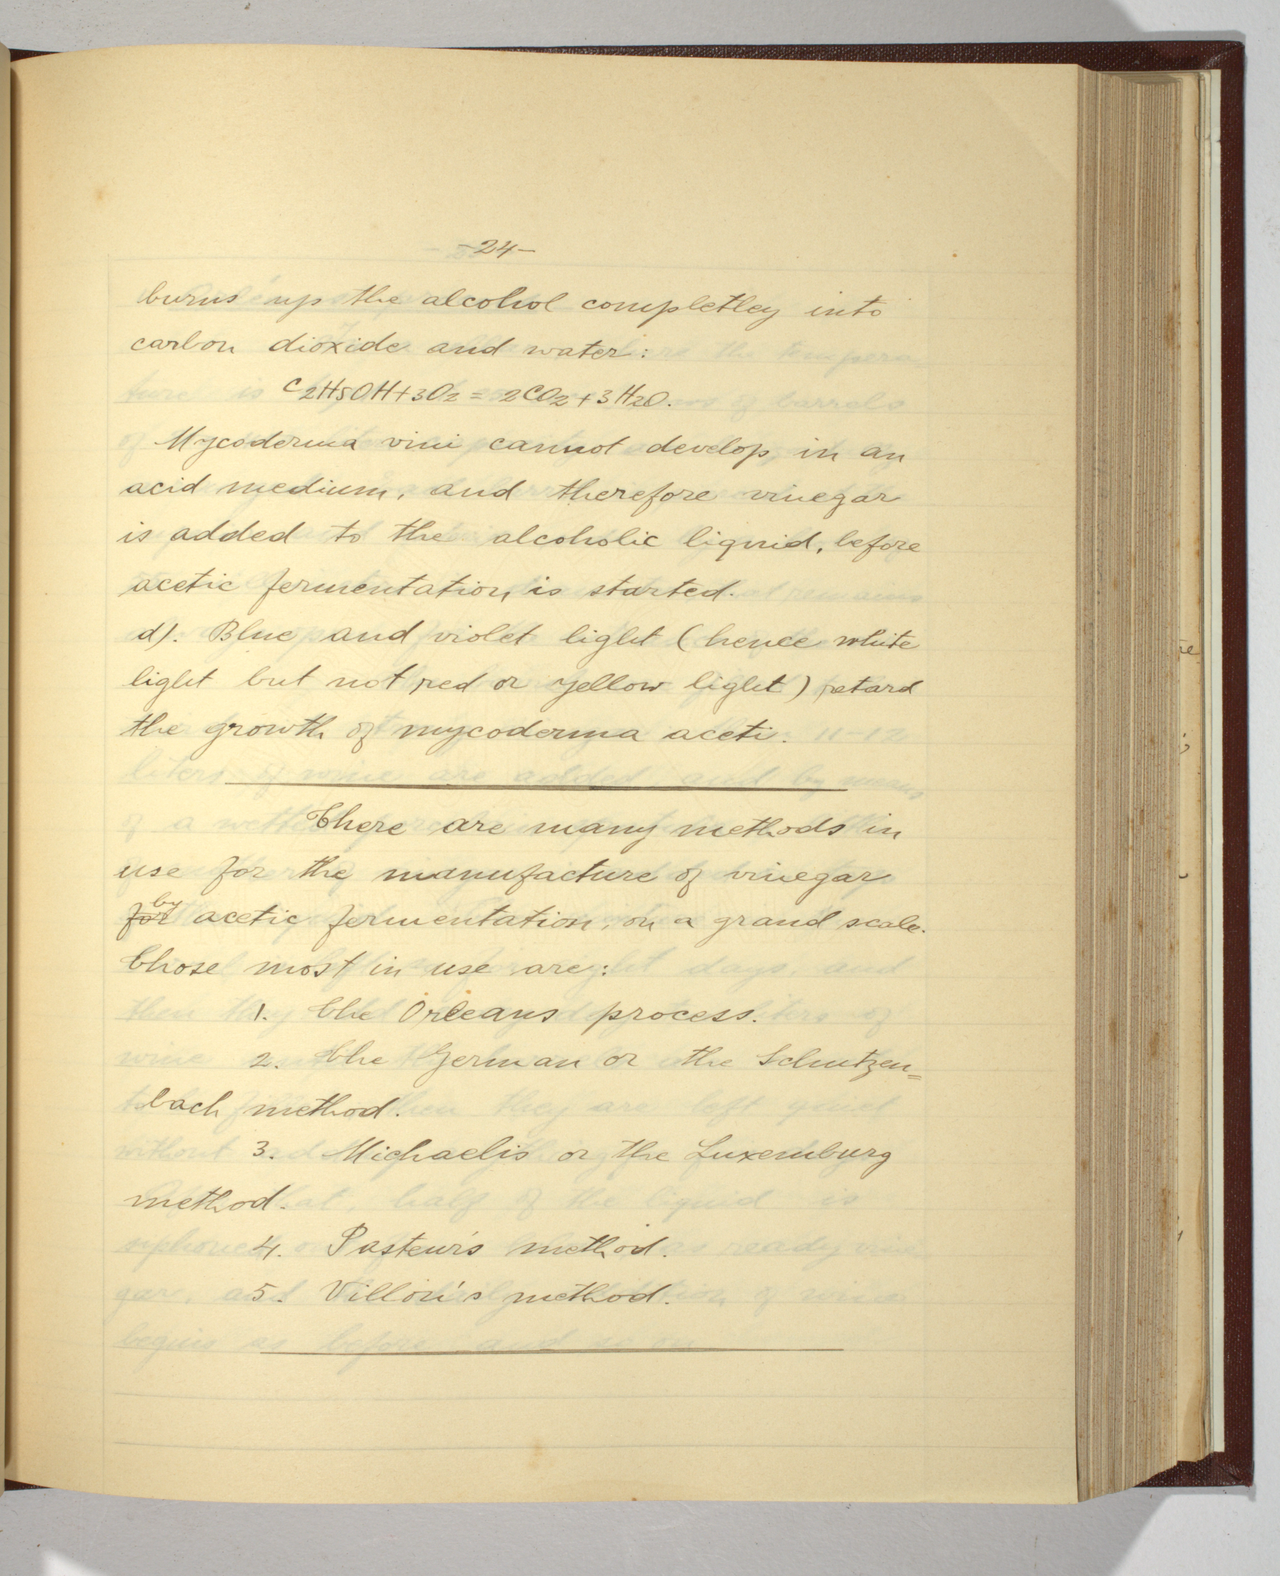 -24-
burns up the alcohol completley into
carbon dioxide and water:
C2H5OH+3O2 = 2CO2+3H2O.
Mycoderma vini cannot develop in an
acid medium, and therefore vinegar
is added to the alcoholic liquid, before
acetic fermentation is started.
d). Blue and violet light (hence white
light but not red or yellow light) retard
the growth of mycoderma aceti.
There are many methods in
use for the manufacture of vinegar
for by acetic fermentation, on a grand scale.
Those most in use are:
1. The Orleans process.
2. The German or the Schutzen=
bach method.
3. Michaelis or the Luxemburg
method.
4. Pasteur's method.
5. Villon's method.